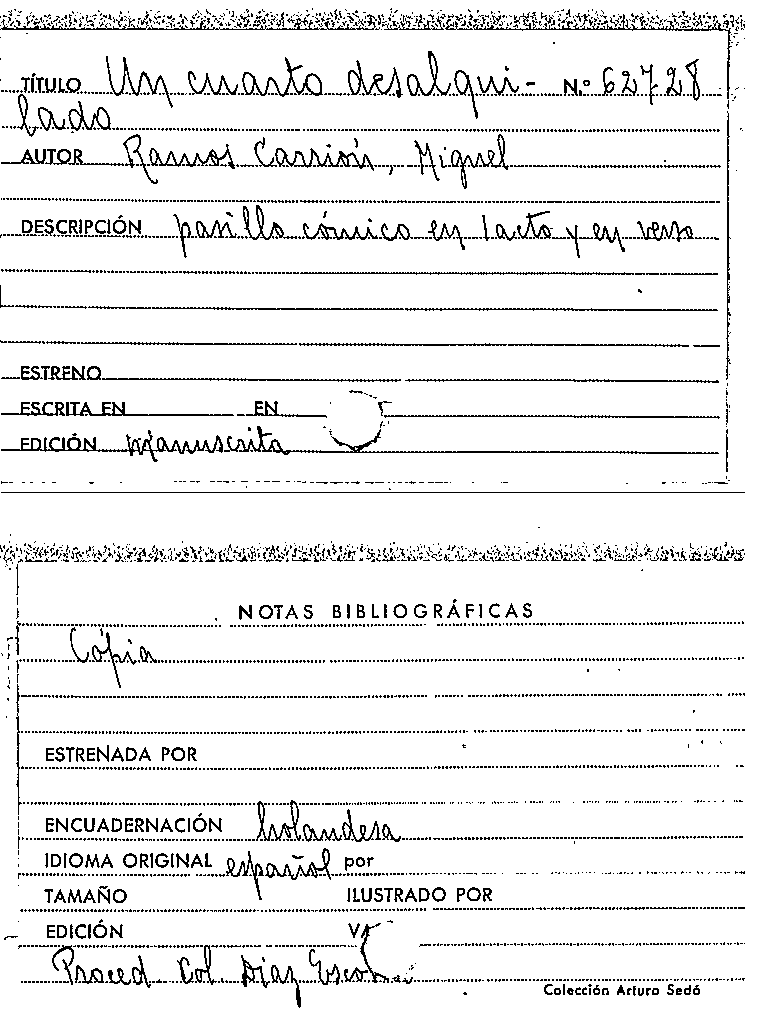 TÍTULO Un cuarto desalqui- N.º 62728
lado
AUTOR Ramos Carrión, Miguel
DESCRIPCIÓN pasillo cómico en 1 acto y en verso
ESTRENO
ESCRITA EN EN
EDICIÓN manuscrita
NOTAS BIBLIOGRÁFICAS
Cópia
ESTRENADA POR
ENCUADERNACIÓN holandesa
IDIOMA ORIGINAL español por
TAMAÑO ILUSTRADO POR
EDICIÓN
Proced. Col. Díaz
Colección Arturo Sedó